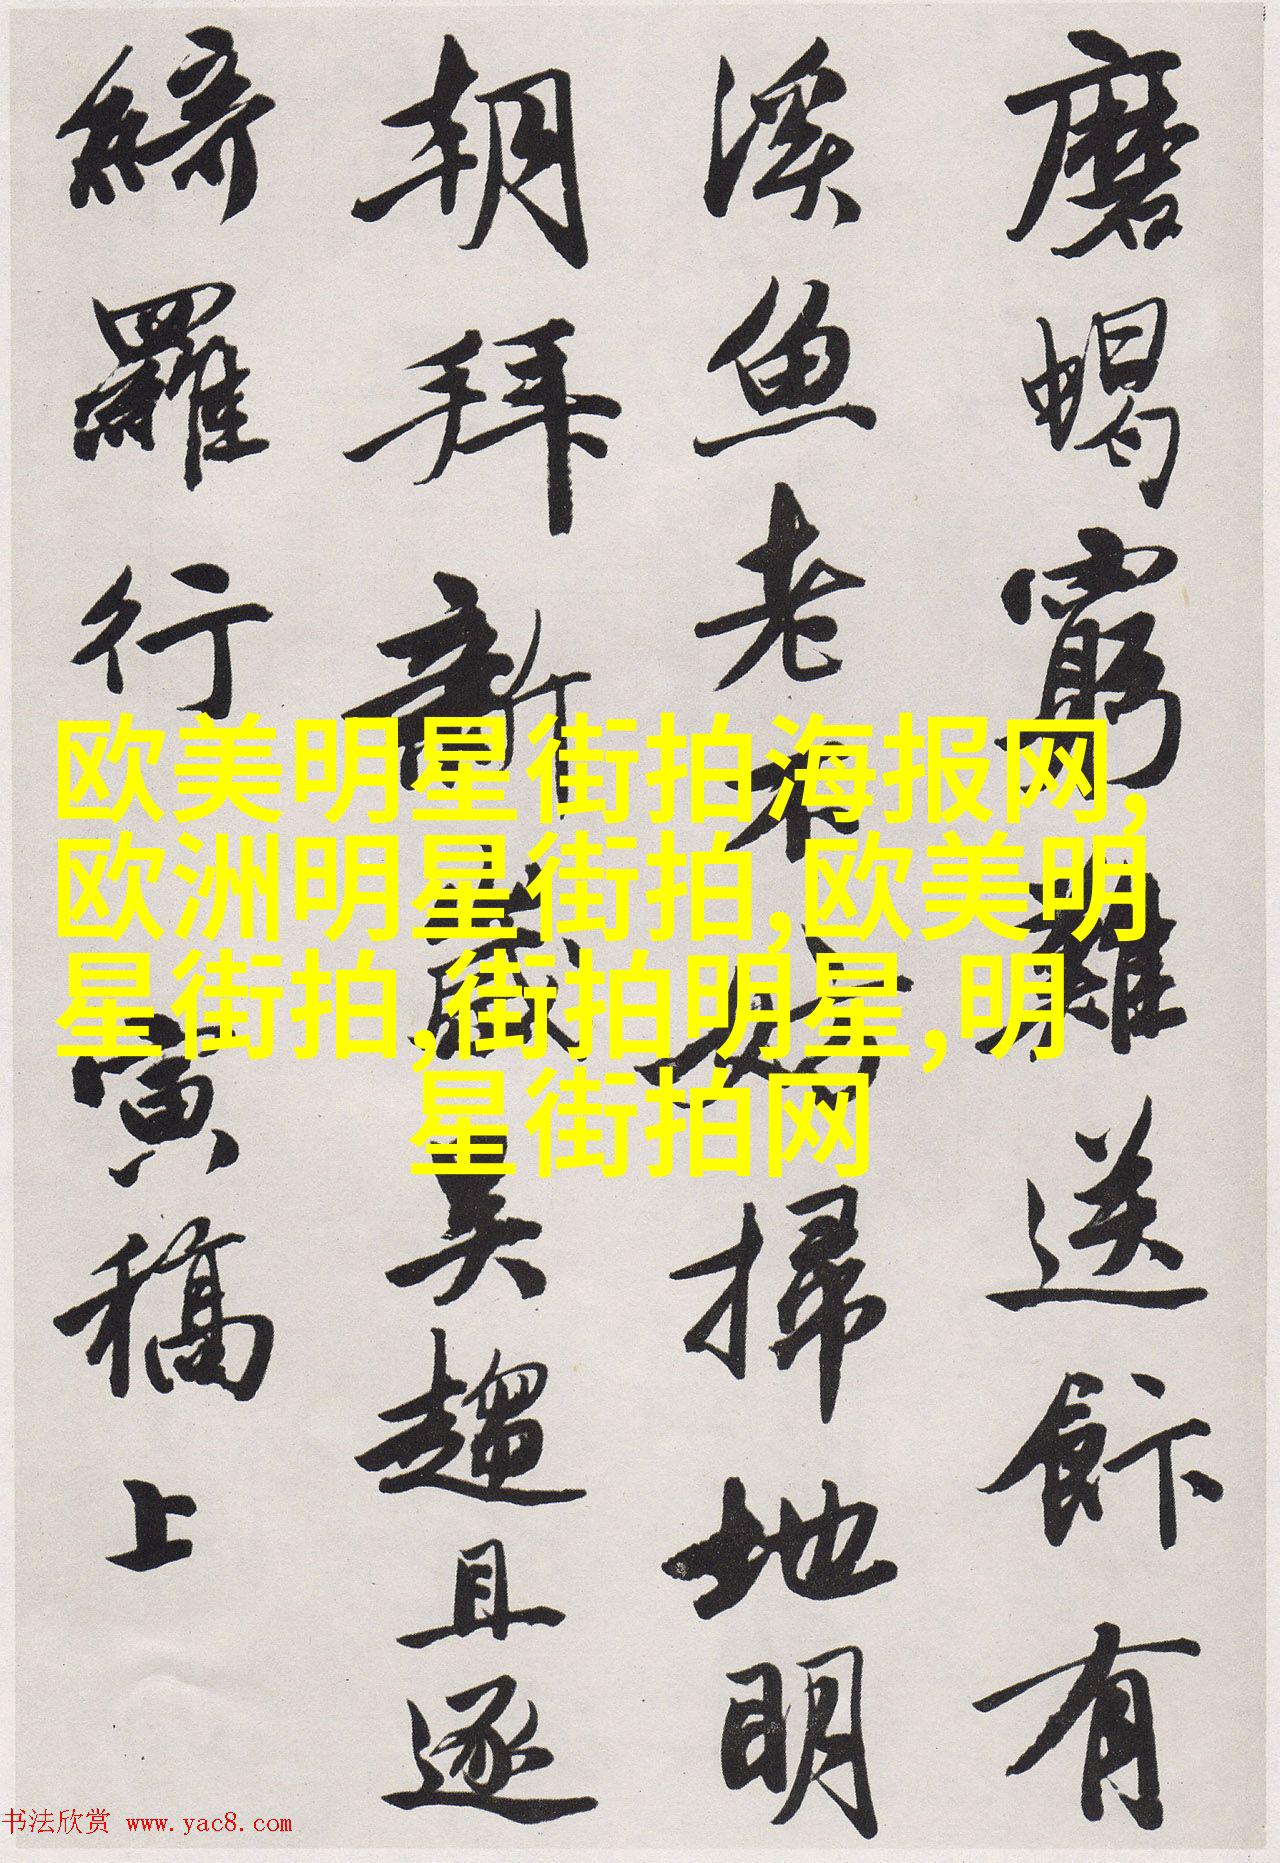 磨蝎窮難送飰有
溪魚老不妨掃地明
朝拜新歲吴趨且逐
綺羅行 寅稿上
欧美明星街拍海报网,
欧洲明星街拍,欧美明
星街拍,街拍明星,明
星街拍网
书法欣赏 www.yac8.com